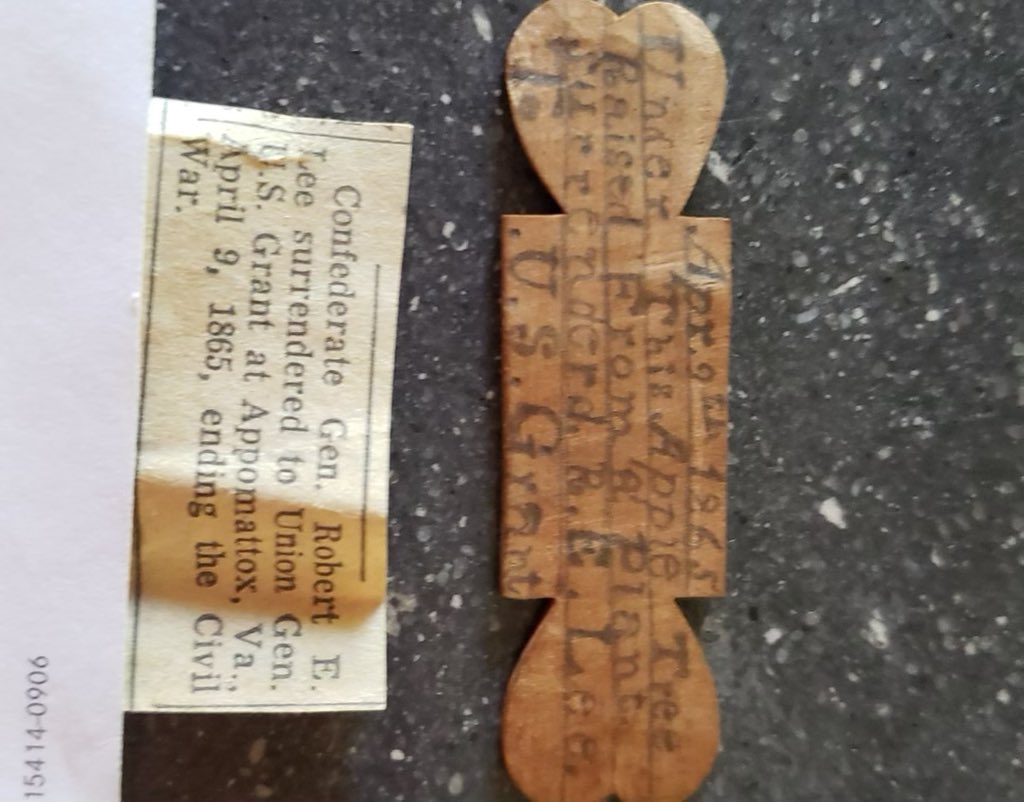 Apr. 9th 1865
Under This Apple Tree
Raised From a Plant
Surrenderd. R. E. Lee.
To. U. S. Grant
Confederate Gen. Robert E.
Lee surrendered to Union Gen.
U.S. Grant at Appomattox, Va.,
April 9, 1865, ending the Civil
War.
15414-0906